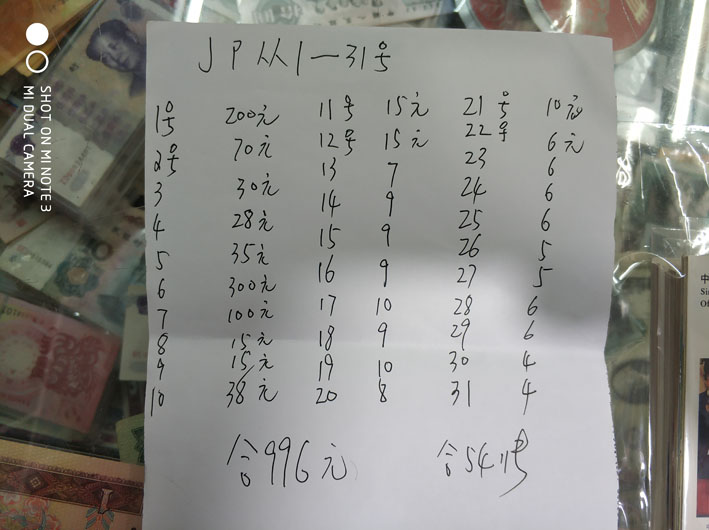 JP从1—31号
1号 200元 11号 15元 21号 10元
2号 70元 12号 15元 22号 6元
3 30元 13 7 23 6
4 28元 14 9 24 6
5 35元 15 9 25 6
6 300元 16 9 26 5
7 100元 17 10 27 5
8 15元 18 9 28 6
9 15元 19 10 29 6
10 38元 20 8 30 4
31 4
合996元 合541
SHOT ON MI NOTE 3
MI DUAL CAMERA